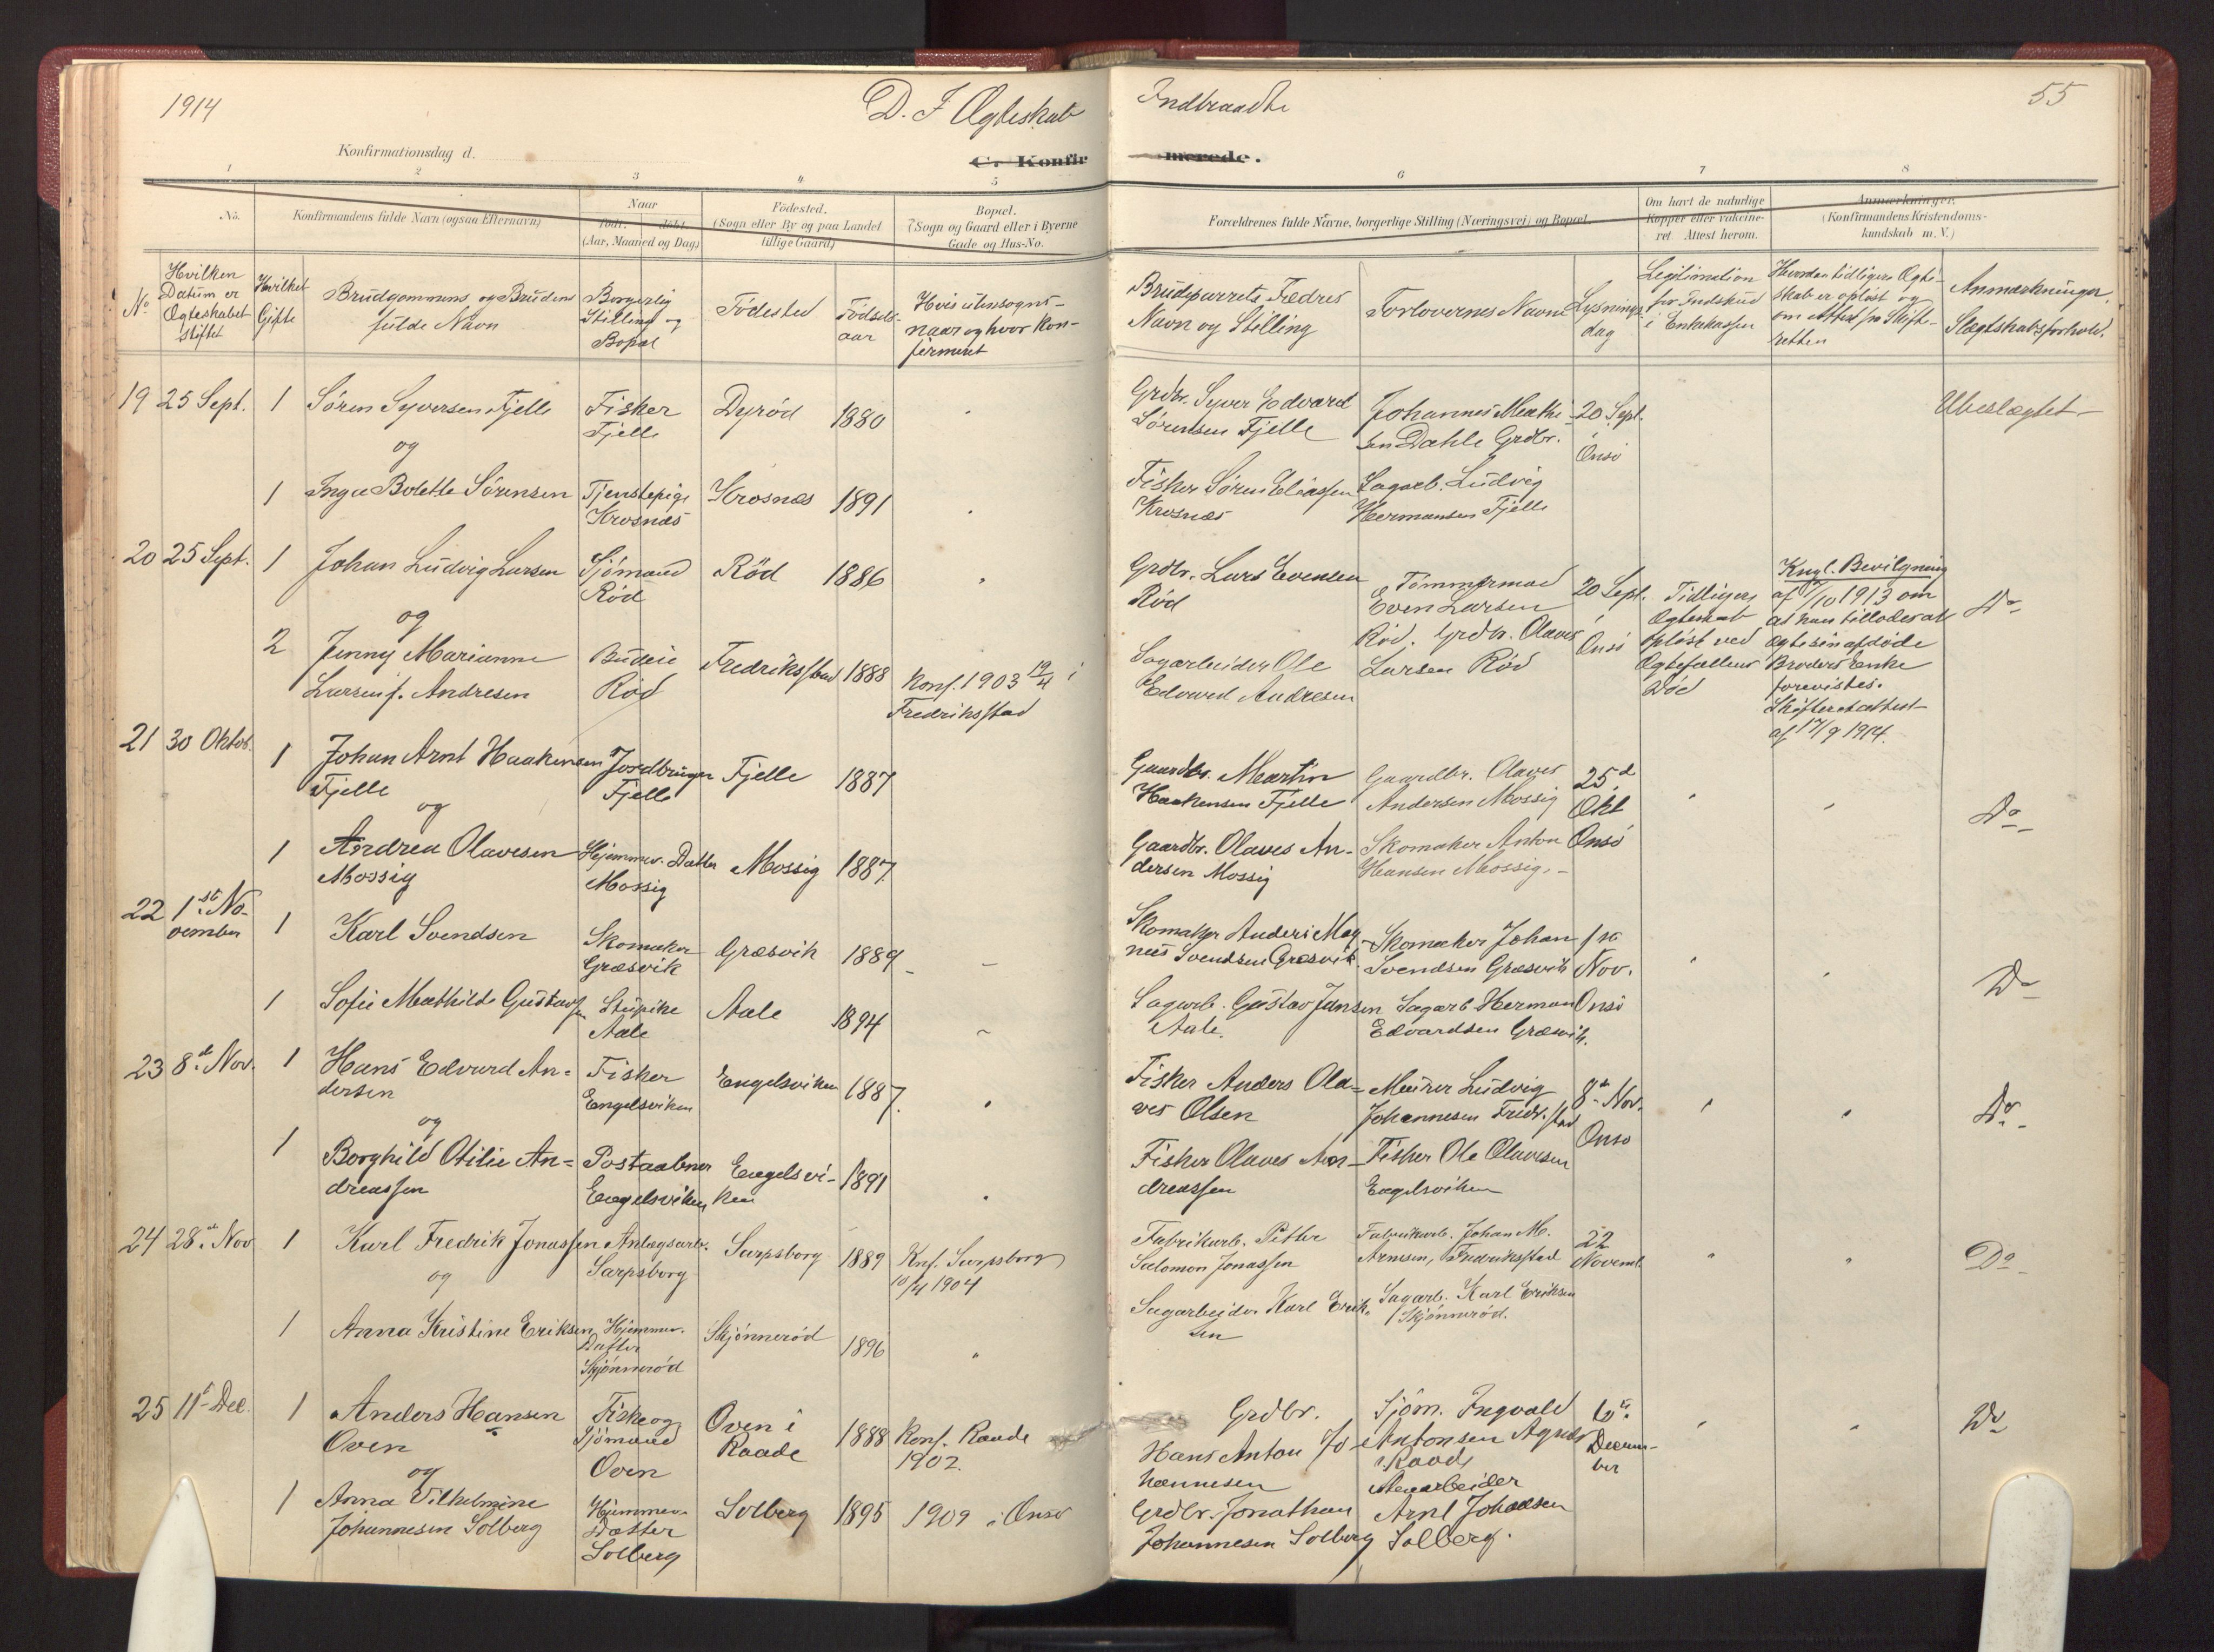 1914
D. I Ægteskab Indtraadte
55
Konfirmationsdag d.
C. Konfirmerede.
1 2 3 4 5 6 7 8
No.
Konfirmandens fulde Navn (ogsaa Efternavn)
Naar
født. døbt.
(Aar, Maaned og Dag)
Fødested.
(Sogn eller By og paa Landet
tillige Gaard)
Bopæl.
(Sogn og Gaard eller i Byerne
Gade og Hus-No.
Forældrenes fulde Navne, borgerlige Stilling (Næringsvei) og Bopæl.
Om havt de naturlige
Kopper eller vakcine-
ret. Attest herom.
Anmærkninger.
(Konfirmandens Kristendoms-
kundskab m. V.)
No
Hvilken
Datum er
Ægteskabet
stiftet
Hvilket
Gifte
Brudgommens og Brudens
fulde Navn
Borgerlig
Stilling og
Bopæl
Födested
Födsels-
aar
Hvis utensogns-
naar og hvor kon-
firmeret
Brudeparrets Fædres
Navn og Stilling
Forlovernes Navne
Lysnings-
dag
Legitimation
for Indskud
i Enkekassen
Hvordan tidligere Ægte-
skab er oplöst og
om Attest fra Skift-
retten
Anmærkninger.
Slægtskabsforhold.
19 25 Sept. 1 Sören Syversen Fjelle
Fisker
Fjelle
Dyröd 1880
Grdbr. Syver Edvard
Sörensen Fjelle
Johannes Mathi-
sen Dahle Grdbr.
20 Sept.
i
Onsö
Ubeslægtet
og
1 Inga Bolette Sörensen
Tjenstepige
Krosnæs
Krosnæs 1891
Fisker Sören Eliassen
Krosnæs
Sagarb. Ludvig
Hermansen Fjelle
20 25 Sept. 1 Johan Ludvig Larsen
Sjömand
Röd
Röd 1886
Grdbr. Lars Evensen
Röd
Tömmermand
Even Larsen
Röd. Grdbr. Olaves
Larsen Röd
20 Sept.
i
Onsö
Tidligere
Ægteskab
oplöst ved
Ægtefællens
Död
Kngl. Bevilgning
af 17/10 1913 om
at han tillades at
ægte sin afdöde
Broders Enke
forevistes.
Skifteretsattest
af 17/9 1914.
Do
og
2 Jenny Marianne
Larsen f. Andresen
Budeie
Röd
Fredriksstad 1888
Konf. 1903 19/4 i
Fredriksstad
Sagarbeider Ole
Edvard Andresen
21 30 Oktob. 1 Johan Arnt Haakensen
Fjelle
Jordbruger
Fjelle
Fjelle 1887
Gaardbr. Martin
Haakensen Fjelle
Gaardbr. Olaves
Andersen Mossig
25d
Okt
Onsö
Do
og
1 Andrea Olavesen
Mossig
Hjemmev. Datter
Mossig
Mossig 1887.
Gaardbr. Olaves An-
dersen Mossig
Skomaker Anton
Hansen Mossig.
22 1ste No-
vember
1 Karl Svendsen
Skomaker
Græsvik
Græsvik 1889
Skomaker Anders Mag-
nus Svendsen Græsvik
Skomaker Johan
Svendsen Græsvik
1ste
Nov.
Onsö
Do
1 Sofie Mathilde Gustavsen
Stupike
Aale
Aale 1894
Sagarb. Gustav Jansen
Aale.
Sagarb Herman
Edvardsen Græsvik.
23 8de Nov. 1 Hans Edvard An-
dersen
Fisker
Engelsviken
Engelsviken 1887.
Fisker Anders Ola-
ves Olsen
Murer Ludvig
Johannesen Fredr.stad
8de Nov.
Onsö
Do
og
1 Borghild Otilie An-
dreassen
Postaabner
Engelsviken
Engelsvi-
ken
1891
Fisker Olaves An-
dreassen
Fisker Ole Olavesen
Engelsviken
24 28de Nov 1 Karl Fredrik Jonassen
Anlægsarb.
Sarpsborg
Sarpsborg 1889
Knf. Sarpsborg
10/4 1904
Fabrikarb. Petter
Salomon Jonassen
Fabrikarb. Johan M.
Arnesen, Fredriksstad
22
Novemb.
Do
og
1 Anna Kristine Eriksen
Hjemmev.
Datter
Skjönneröd
Skjönneröd 1896
Sagarbeider Karl Erik-
sen
Sagarb. Karl Eriksen
Skjönneröd.
25 11te Dec. 1 Anders Hansen
Oven
Fisker og
Sjömand
Oven
Oven i
Raade
1888
Konf. Raade
1902.
Grdbr.
Hans Anton Jo-
hannesen
Sjöm. Ingvald
Antonsen
i Raade
Decem-
ber
Do
og
1 Anna Vilhelmine
Johannesen Solberg
Hjemmev.
Datter
Solberg
Solberg 1895 1909 i Onsö
Grdbr. Jonathan
Johannesen Solberg
Arnt Johansen
Solberg.